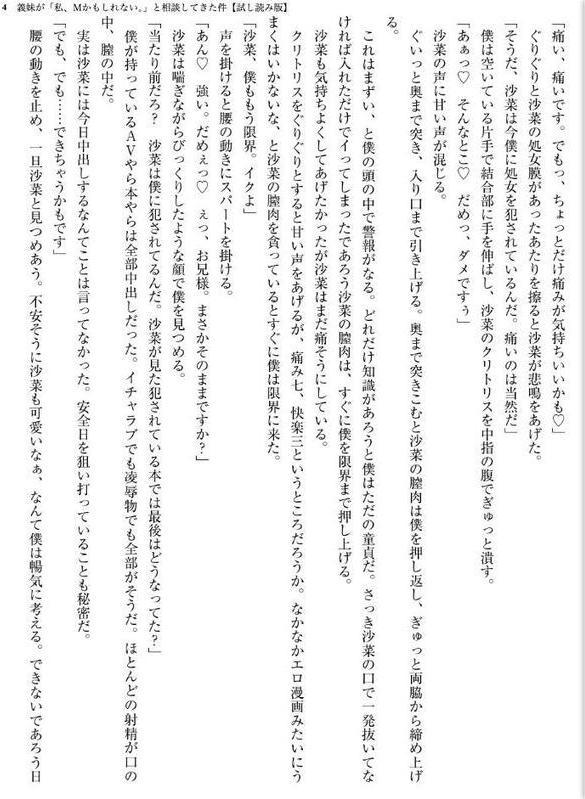 4　義妹が「私、Mかもしれない。」と相談してきた件【試し読み版】
「痛い、痛いです。でも、ちょっとだけ痛みが気持ちいいかも♡」
ぐりぐりと沙菜の処女膜があったあたりを擦ると沙菜が悲鳴をあげた。
「そうだ、沙菜は今僕に処女を犯されているんだ。痛いのは当然だ」
僕は空いている片手で結合部に手を伸ばし、沙菜のクリトリスを中指の腹でぎゅっと潰す。
「あぁっ♡　そんなとこ♡　だめっ、ダメですぅ」
沙菜の声に甘い声が混じる。
ぐいっと奥まで突き、入り口まで引き上げる。奥まで突きこむと沙菜の膣肉は僕を押し返し、ぎゅっと両脇から締め上げ
る。
これはまずい、と僕の頭の中で警報がなる。どれだけ知識があろうと僕はただの童貞だ。さっき沙菜の口で一発抜いてな
ければ入れただけでイってしまったであろう沙菜の膣肉は、すぐに僕を限界まで押し上げる。
沙菜も気持ちよくしてあげたかったが沙菜はまだ痛そうにしている。
クリトリスをぐりぐりとすると甘い声をあげるが、痛み七、快楽三というところだろうか。なかなかエロ漫画みたいにう
まくはいかないな、と沙菜の膣肉を貪っているとすぐに僕は限界に来た。
「沙菜、僕ももう限界。イクよ」
声を掛けると腰の動きにスパートを掛ける。
「あん♡　強い。だめぇっ♡　えっ、お兄様。まさかそのままですか？」
沙菜は喘ぎながらびっくりしたような顔で僕を見つめる。
「当たり前だろ？　沙菜は僕に犯されてるんだ。沙菜が見た犯されている本では最後はどうなってた？」
僕が持っているAVやら本やらは全部中出しだった。イチャラブでも凌辱物でも全部がそうだ。ほとんどの射精が口の
中、膣の中だ。
実は沙菜には今日中出しするなんてことは言ってなかった。安全日を狙い打っていることも秘密だ。
「でも、でも……できちゃうかもです」
腰の動きを止め、一旦沙菜と見つめあう。不安そうに沙菜も可愛いなぁ、なんて僕は暢気に考える。できないであろう日